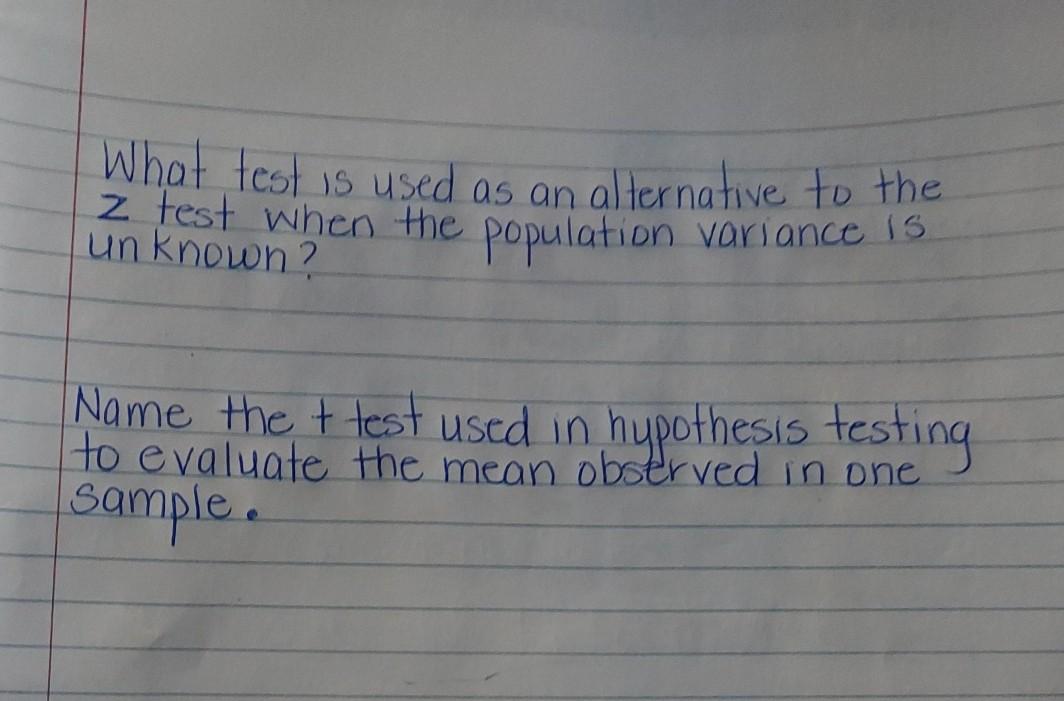 What test is used as an alternative to the
z test when the population variance is
unknown?
Name the t test used in hypothesis testing
to evaluate the mean observed in one
sample.